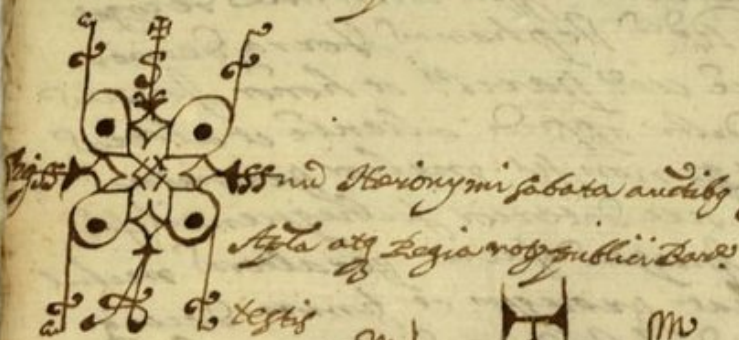 Sig✠num Hieronymi Sabata auctibꝫ
Aplᷓa atqꝫ Regia notꝫ publici Barᷓ
testis